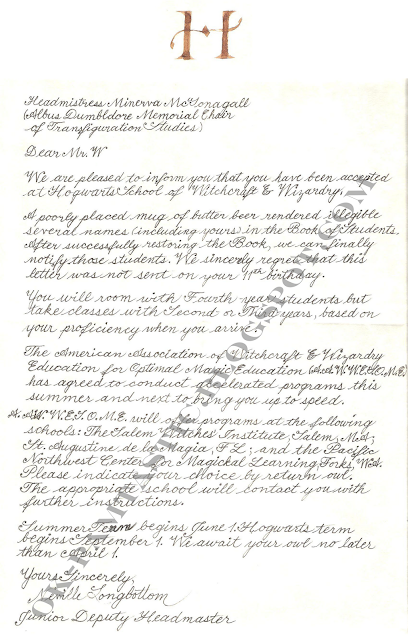 H
Headmistress Minerva McGonagall
(Albus Dumbldore Memorial Chair
of Transfiguration Studies)
Dear Mr. W
We are pleased to inform you that you have been accepted
at Hogwarts School of Witchcraft & Wizardry.
A poorly placed mug of butter beer rendered illegible
several names (including yours) in the Book of Students.
After successfully restoring the Book, we can finally
notify those students. We sincerely regret that this
letter was not sent on your 11th birthday.
You will room with Fourth year students but
take classes with Second or Third years, based on
your proficiency when you arrive.
The American Association of Witchcraft & Wizardry
Education for Optimal Magic Education (A.A.W.W.E.F.O.M.E.)
has agreed to conduct accelerated programs this
summer and next to bring you up to speed.
will offer programs at the following
schools: The Salem Witches Institute, Salem, MA;
St. Augustine de la Magia, FL; and the Pacific
Northwest Center for Magickal Learning, Forks, WA.
Please indicate your choice by return owl.
The appropriate school will contact you with
further instructions.
Summer Term begins June 1. Hogwarts term
begins September 1. We await your owl no later
than April 1.
Yours Sincerely,
Neville Longbottom
Junior Deputy Headmaster